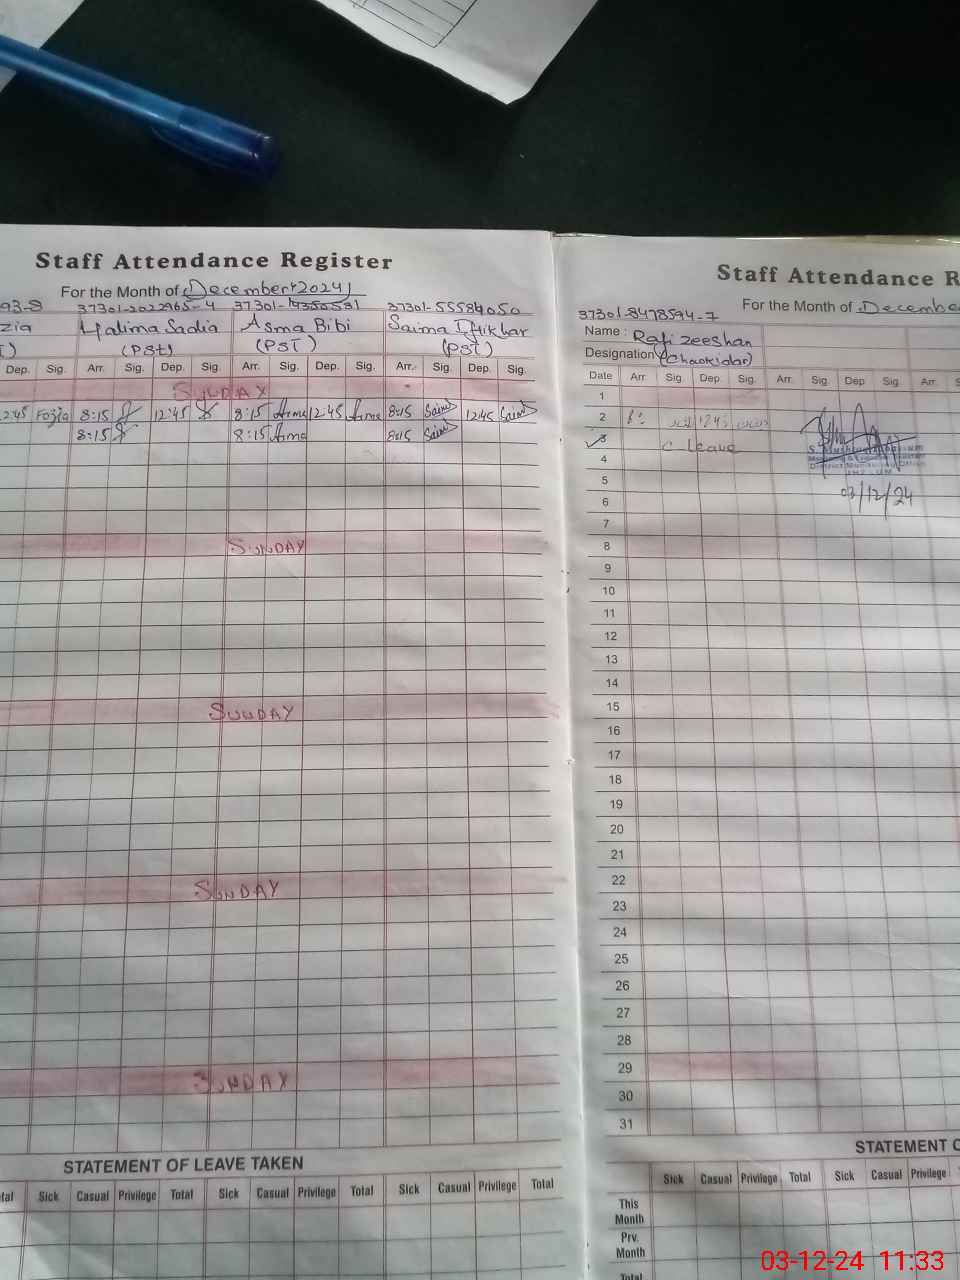 Staff Attendance Register
For the Month of December 2024
93-9 37301-2022965-4 37301- 37301-55584050
zia Halima Sadia Asma Bibi Saima Iftikhar
T) (PSt) (PST) (PST)
Dep. Sig. Arr. Sig. Dep. Sig. Arr. Sig. Dep. Sig. Arr. Sig. Dep. Sig.
SUNDAY
12:45 Fozia 8:15 12:45 8:15 Asma 12:45 Asma 8:15 Saima 12:45 Saima
8:15 8:15 Asma 8:15 Saima
SUNDAY
SUNDAY
SUNDAY
SUNDAY
STATEMENT OF LEAVE TAKEN
otal Sick Casual Privilege Total Sick Casual Privilege Total Sick Casual Privilege Total
Staff Attendance R
For the Month of Decembe
37301-8478594-7
Name : Rafi zeeshan
Designation (Chaokidar)
Date Arr. Sig. Dep. Sig. Arr. Sig. Dep. Sig. Arr. S
1
2 12:45
3 C Leave
4
03/12/24
5
6
7
8
9
10
11
12
13
14
15
16
17
18
19
20
21
22
23
24
25
26
27
28
29
30
31
STATEMENT O
Sick Casual Privilege Total Sick Casual Privilege
This Month
Prv. Month
Total
03-12-24 11:33